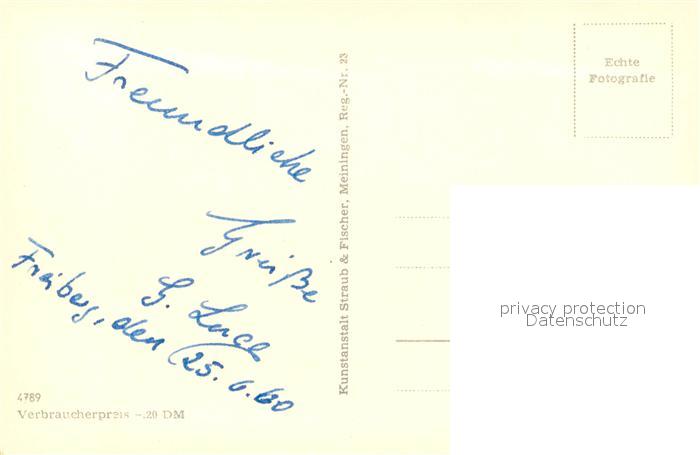 Freundliche
Grüße
G. Luce
Freiberg, den 25. 6. 60
4789
Verbraucherpreis -.20 DM
Kunstanstalt Straub & Fischer, Meiningen, Reg.-Nr. 23
Echte
Fotografie
privacy protection
Datenschutz